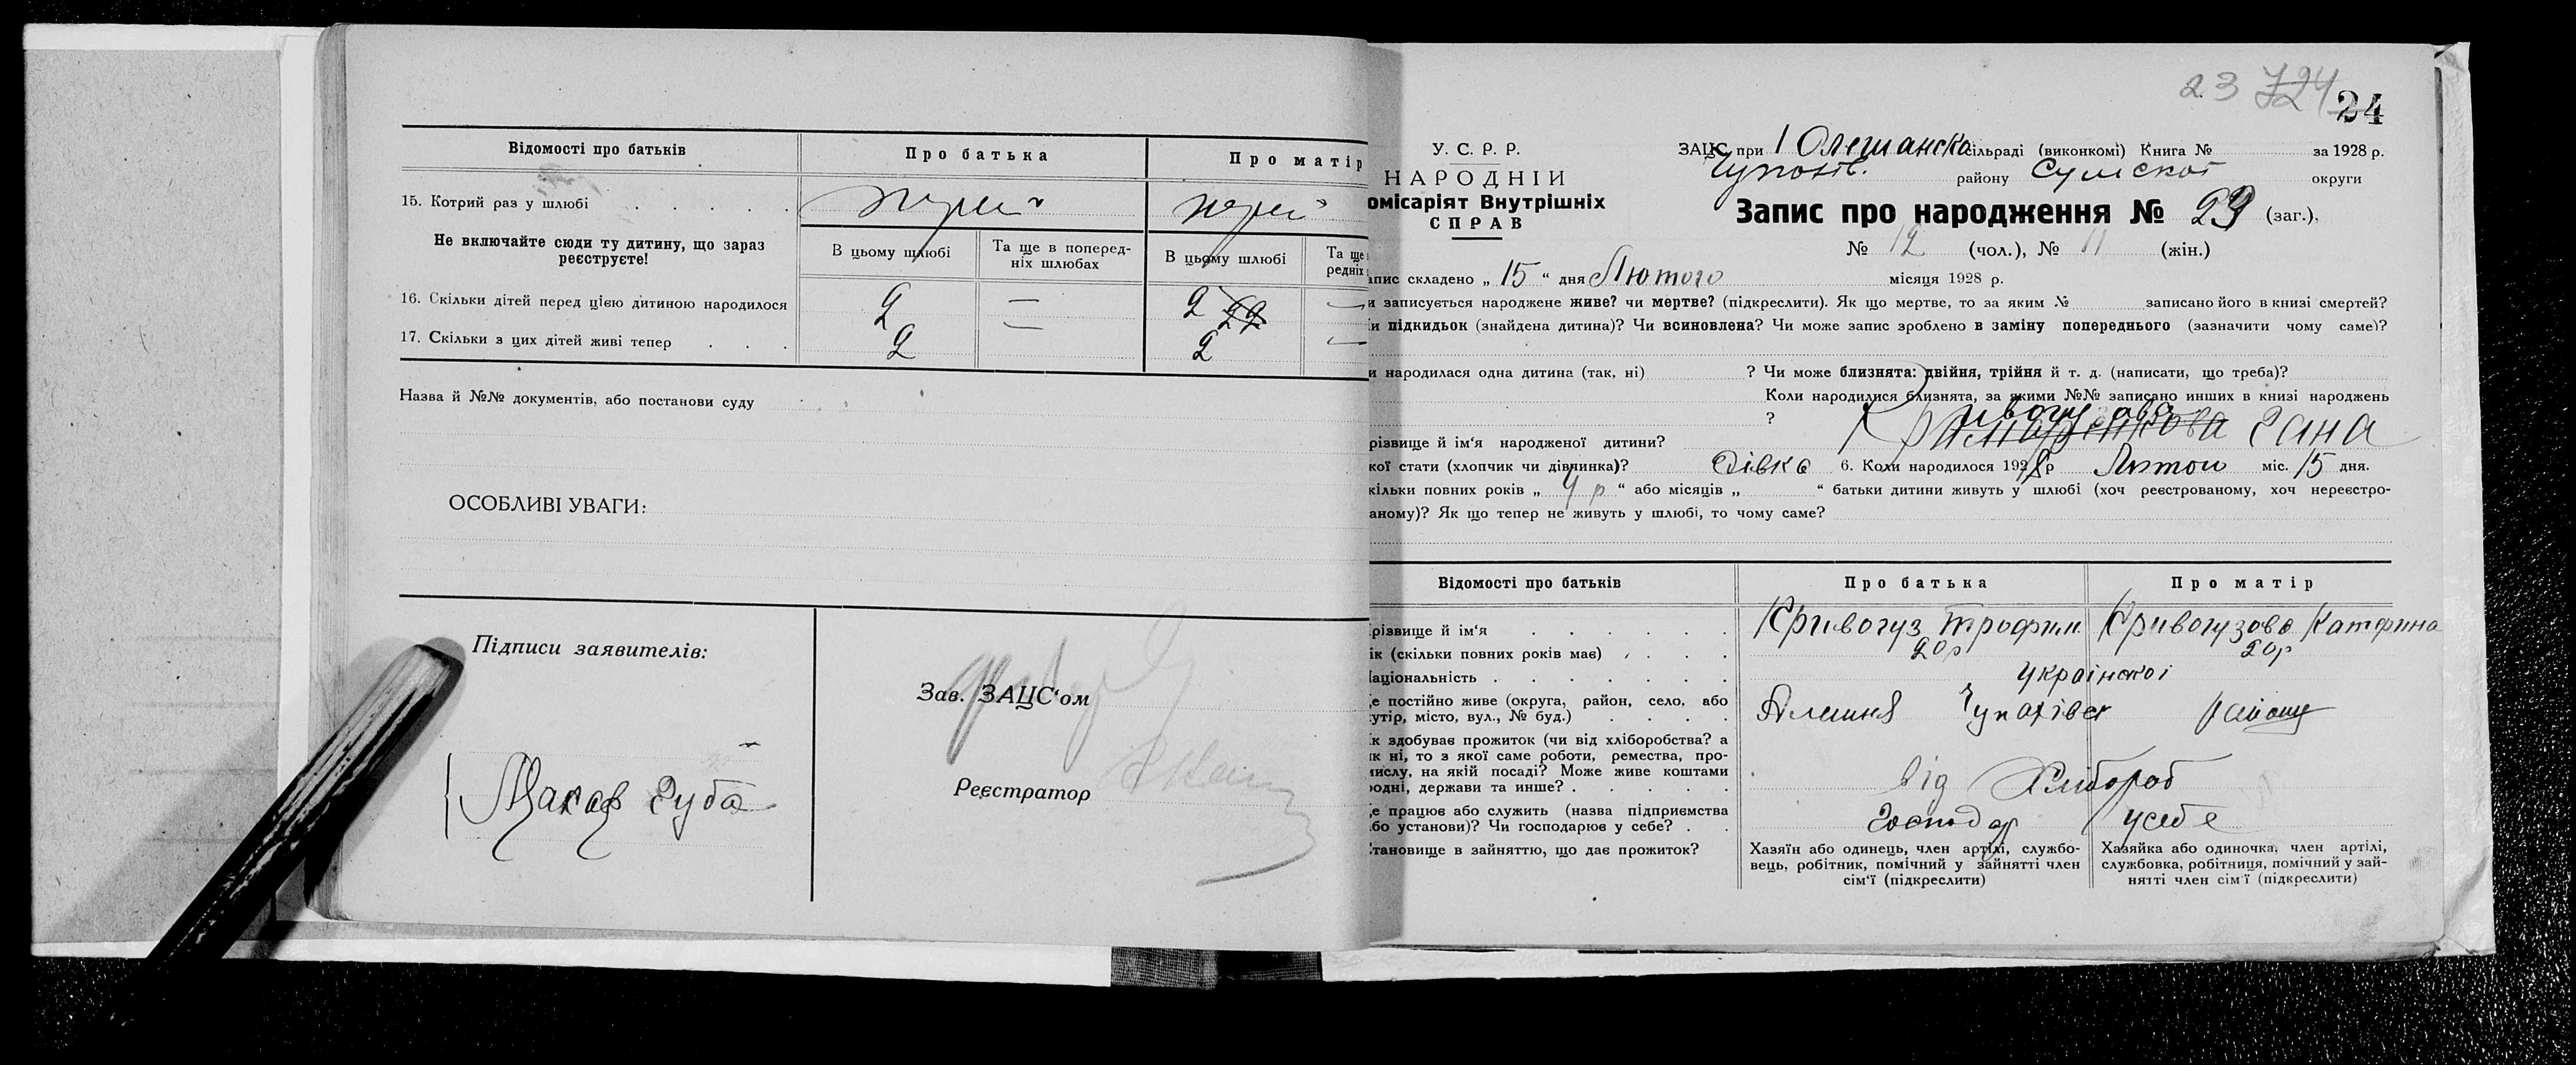 Відомості про батьків
Про батька
Про матір
15. Котрий раз у шлюбі
Не включайте сюди ту дитину, що зараз реєструєте!
В цьому шлюбі
Та ще в поперед-
ніх шлюбах
В цьому шлюбі
Та ще
редніх
16. Скільки дітей перед цією дитиною народилося 2 — 2 —
17. Скільки з цих дітей живі тепер 2 — 2 —
Назва й №№ документів, або постанови суду
ОСОБЛИВІ УВАГИ:
Підписи заявителів:
Зав. ЗАЦС‘ом
Реєстратор
Макар Губа
23 724
24
У. С. Р. Р.
НАРОДНІЙ
омісаріят Внутрішніх
СПРАВ
ЗАЦС при 1 Олешанска сільраді (виконкомі) Книга № за 1928 р.
району Сумскої округи
Запис про народження № 23 (заг.),
№ 12 (чол.), № 11 (жін.)
апис складено „ 15 “ дня Лютого місяця 1928 р.
и записується народжене живе? чи мертве? (підкреслити). Як що мертве, то за яким № записано його в книзі смертей?
и підкидьок (знайдена дитина)? Чи всиновлена? Чи може запис зроблено в заміну попереднього (зазначити чому саме)?
и народилася одна дитина (так, ні) ? Чи може близнята: двійня, трійня й т. д. (написати, що треба)?
Коли народилися близнята, за якими №№ записано инших в книзі народжень
?
різвище й ім‘я народженої дитини? Гана
кої стати (хлопчик чи дівчинка)? Дівка 6. Коли народилося 1928 р Лютого міс. 15 дня.
кільки повних років „ 4 р “ або місяців „ “ батьки дитини живуть у шлюбі (хоч реєстрованому, хоч нереєстро-
аному)? Як що тепер не живуть у шлюбі, то чому саме?
Відомості про батьків
Про батька
Про матір
різвище й ім‘я Кривогуз Трофим Кривогузова Катфина
ік (скільки повних років має) 20р 20р
аціональність української
е постійно живе (округа, район, село, або
утір, місто, вул., № буд.) Алешня Чупахівск району
к здобуває прожиток (чи від хліборобства? а
к ні, то з якої саме роботи, ремества, про-
мислу, на якій посаді? Може живе коштами
родні, держави та инше? від Хлибороб
е працює або служить (назва підприємства
бо установи)? Чи господарює у себе? Господар усебе
тановище в зайняттю, що дає прожиток?
Хазяїн або одинець, член артілі, службо-
вець, робітник, помічний у зайнятті член
сім‘ї (підкреслити)
Хазяйка або одиночка, член артілі,
службовка, робітниця, помічний у зай-
нятті член сім‘ї (підкреслити)